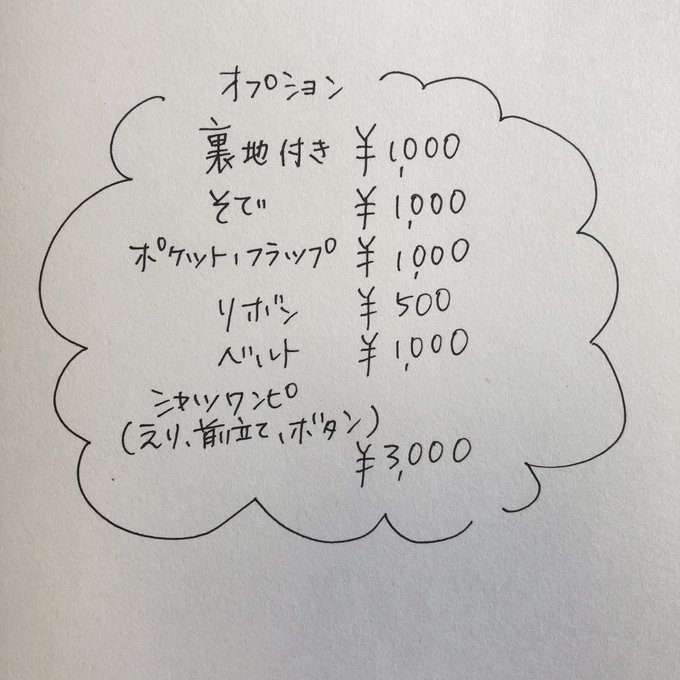 オプション
裏地付き ¥1,000
そで ¥1,000
ポケット、フラップ ¥1,000
リボン ¥500
ベルト ¥1,000
シャツワンピ
(えり、前立て、ボタン)
¥3,000